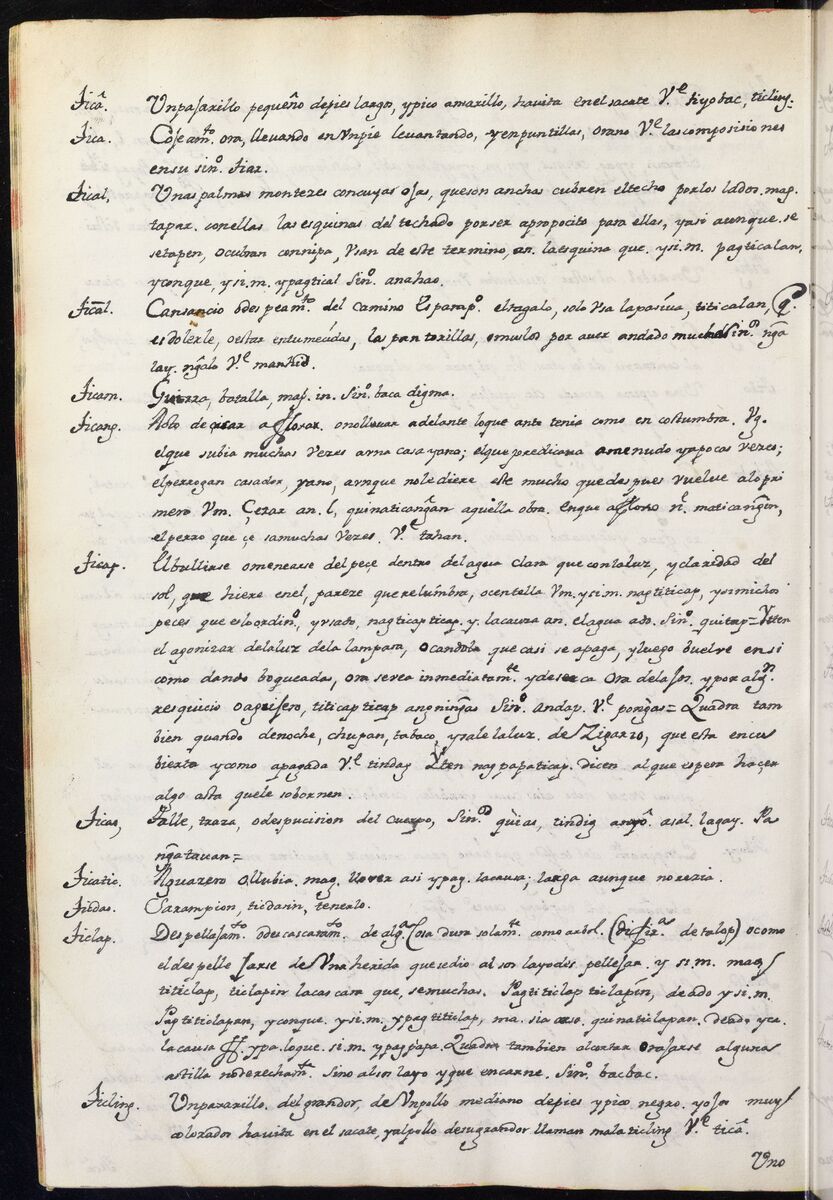 Ticâ. Vnpasarillo pequeño depies largos, ypico amarillo, havita enel sacate V.e tiyobac, ticling.
Tica. Cojeam.to ora, llevando enVnpie levantando, yenpuntillas, orano V.e lascomposisiones
ensu sin.o tiar.
Tical, Vnas palmas montezes concuyas ojas, queson anchas cubren eltecho porlos lados. mag
tapar. conellas las esquinas del techado porser apropocito para ellas, yasi aunque se
setapen, ocubran connipa, Vsan de este termino, an. laesquina que. ysi.m. pagticalan,
yconque, ysi.m. ypagtical sin.o anahao.
Tical. Cansancio odespeam.to del camino Esparap.o eltagalo, solo Vsa lapasiva, titicalan, q.e
esdolerle, oestar entumecidas, las pantorillas, omuslos por aver andado muchas sin.os nga
lay. ngalo V.e mankid.
Ticam. Guerra, batalla, mag. in. sin.o baca digma.
Ticang. Acto de cesar aflojar. onollevar adelante loque ante tenia como en costumbre. Vg.
elque subia muchas Vezes auna casa yano; elque predicava amenudo yapocas Vezes;
elperrogan casador, yano, aunque nolediere este mucho quedespues vuelve alopri
mero Vm. Çezar an. l, quinaticangan aquella obra. Enque aflojo n.c maticangin,
elperro que çe samuchas Vezes. V.e tahan.
Ticap. Ebullirse omenearse del peçe dentro delagua clara que conlaluz, yclaridad del
sol, que hiere enel, pareze querelumbra, ocentella Vm. ysi.m. nagtiticap, ysimuchos
peces que eslo ordin.o, yusado, nagticapticap. y. lacausa an. elagua ado. sin.o quitap = Ytten
el agonizar delaluz dela lampara, ocandela que casi se apaga, yluego buelve ensi
como dando boqueadas, ora sevea inmediatam.te ydeserca ora delexos. ypor alg.n
resquicio oagujero, titicapticap angningas sin.o andap. V.e pongas = Quadra tam
bien quando denoche, chupan, tabaco, ysale laluz. de Zigarro, que esta encu
bierta ycomo apagada V.e tindag Ytten nagpapaticap. dicen al que espera haçer
algo asta quele sobornen.
Ticas, Talle, traza, odespusicion del cuerpo, sin.os quias, tindig anyô. asal. lagay. pa
ngatauan =
Ticatic. Aguazero ollubia. mag. llover asi ypag. lacausa; larga aunque norezia.
Ticdas. Sarampion, ticdasin, tenerlo.
Ticlap. Despellejam.to odescascaram.to de alg.a Cosa dura solam.te como arbol. (difir.a de talop) ocomo
eldespelle jarse de Vnaherida quesedio al sos layodes. pellejar. y si.m. mag
titiclap, ticlapin lacascara que, semuchas. Pagtiticlap ticlapin, deado ysi.m.
Pagtiticlapan, yconque. ysi.m. ypagtiticlap, ma. sia caso. quinaticlapan. deado yca.
lacausa ypa. loque. si.m. ypagpapa. Quadra tambien alcortar orajarse alguna
astilla noderecham.te sino alsos layo yque encarne. sin.o bacbac.
Ticling. Vnpaxarillo. delgrandor, de Vnpollo mediano depies ypico negro. yojos muy
colorados havita en el sacate, yalpollo desugrandor llaman malaticling V.e ticâ.
Vno